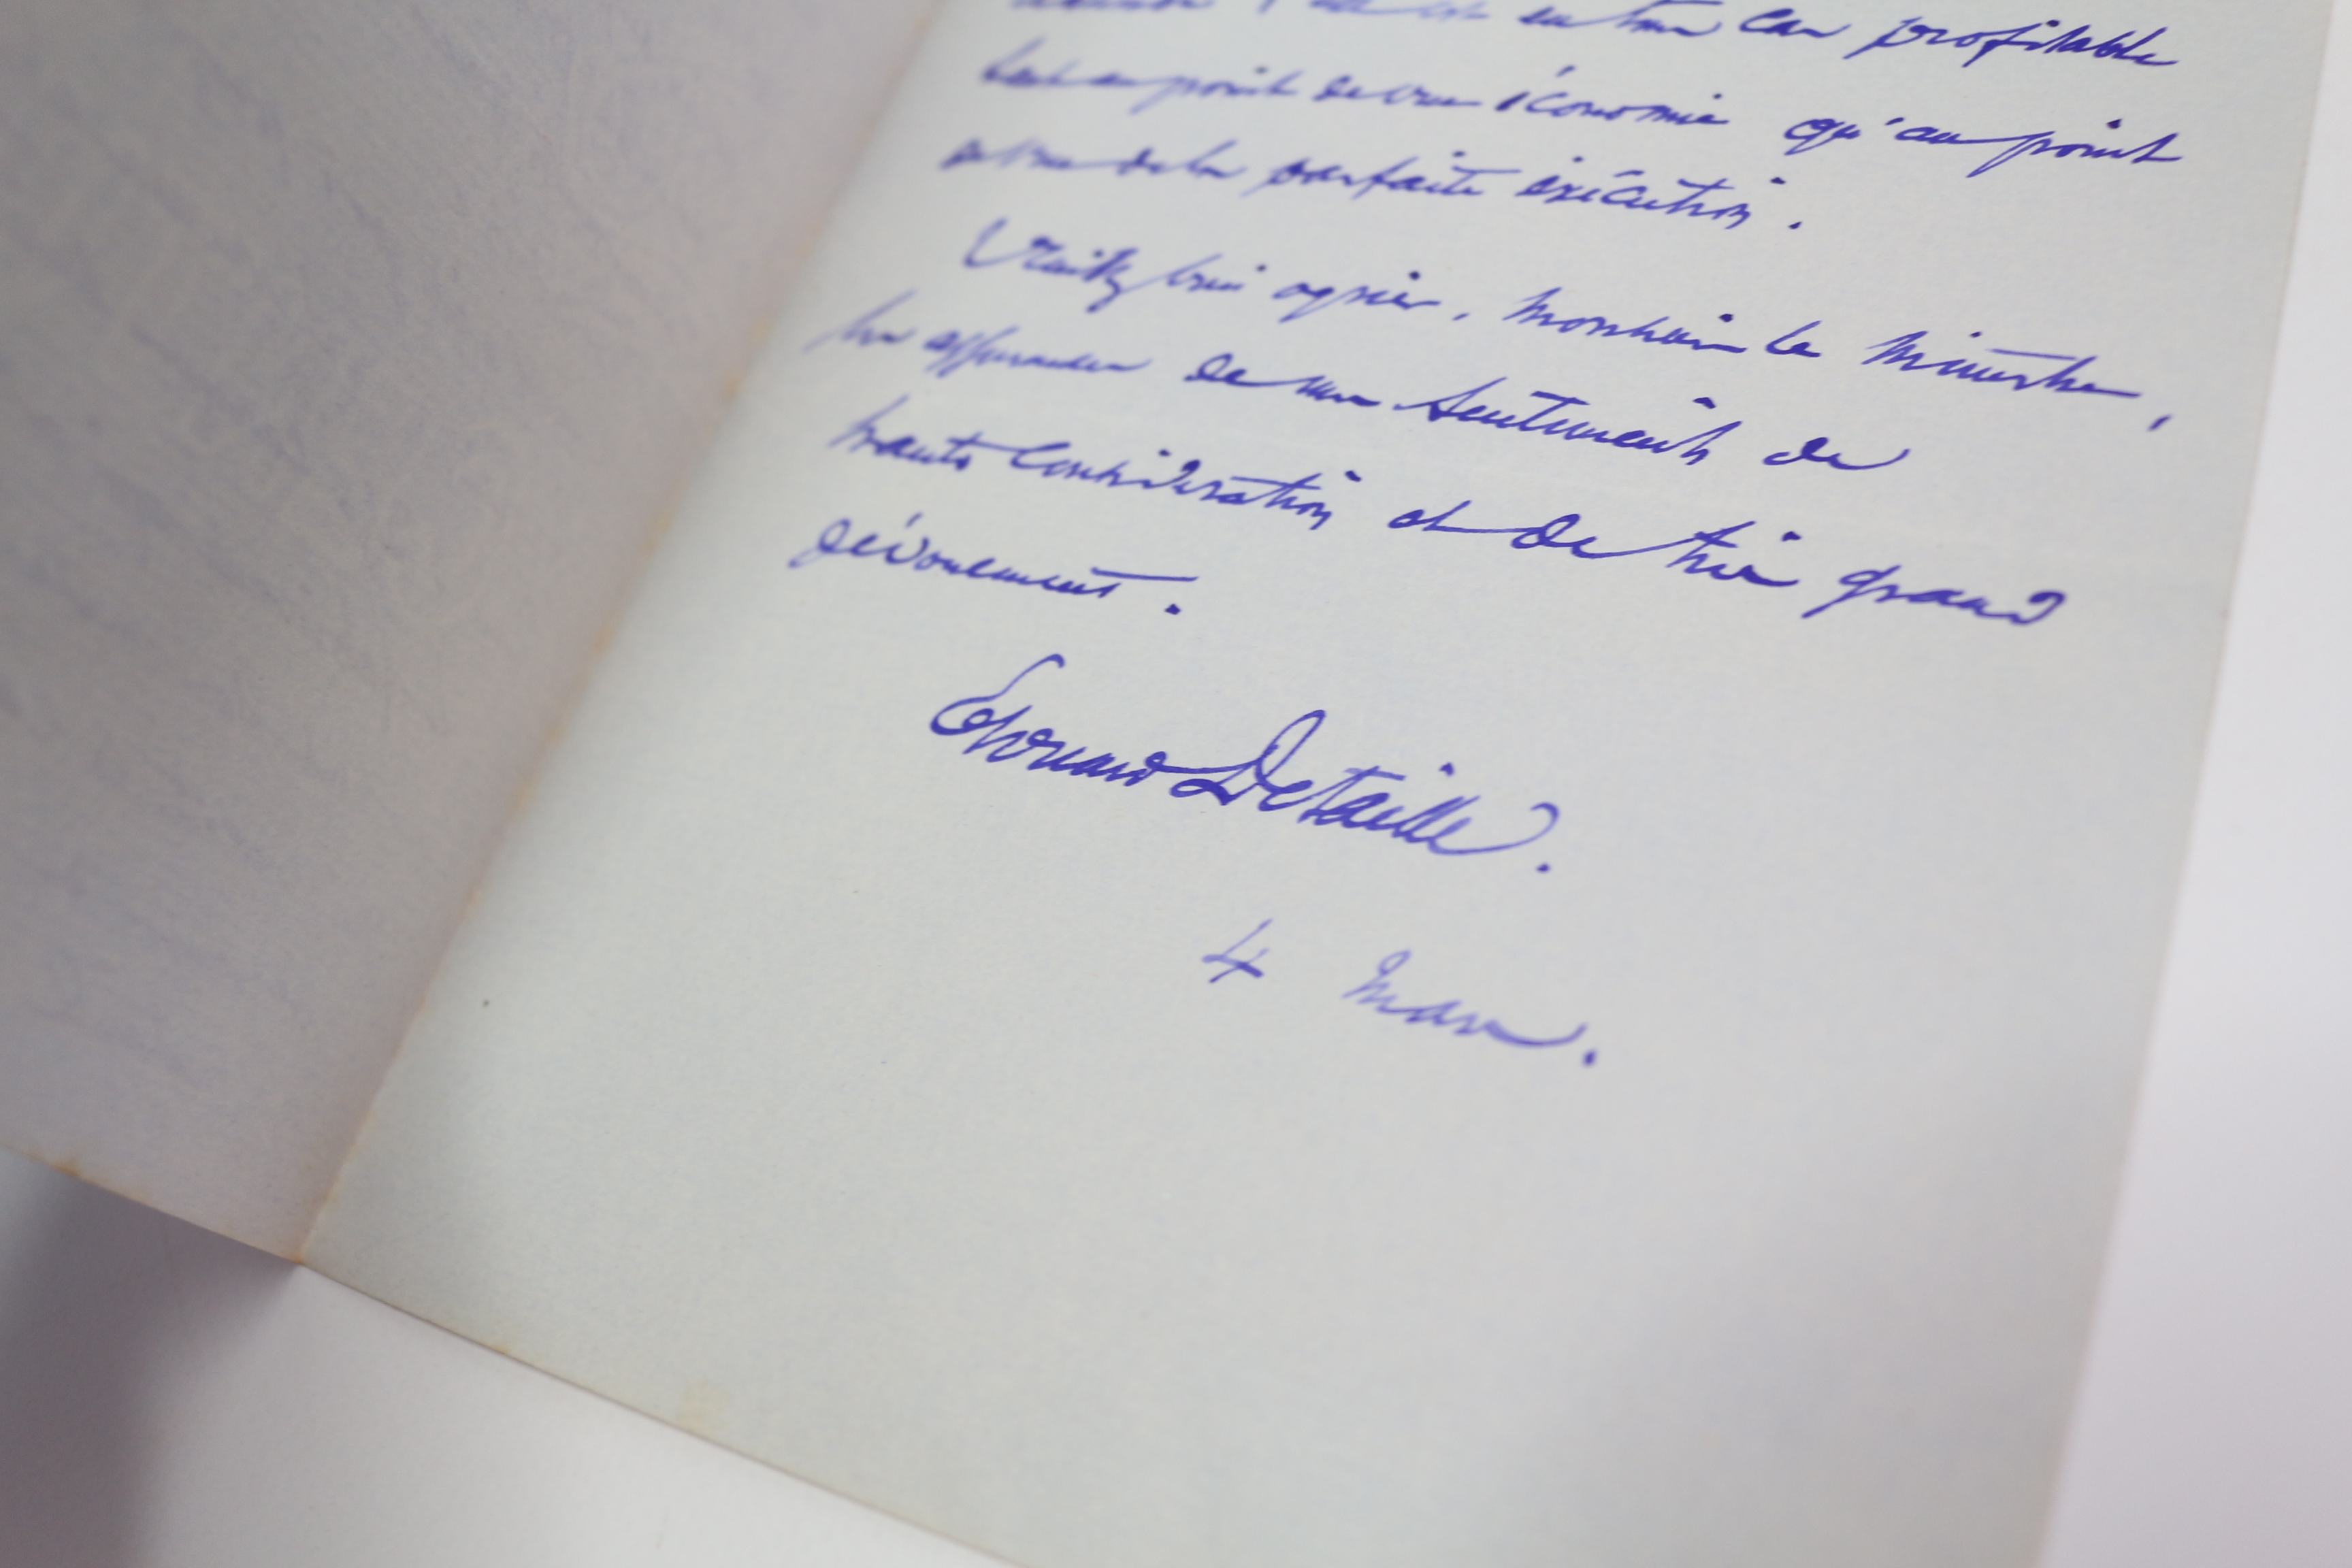 en tous cas profitable
tant au point de vue économie qu'au point
de vue de la parfaite exécution.
Veuillez bien agréer, Monsieur le Ministre,
les assurances de mes sentiments de
haute considération et de très grand
dévouement.
Edouard Detaille.
4 Mars.